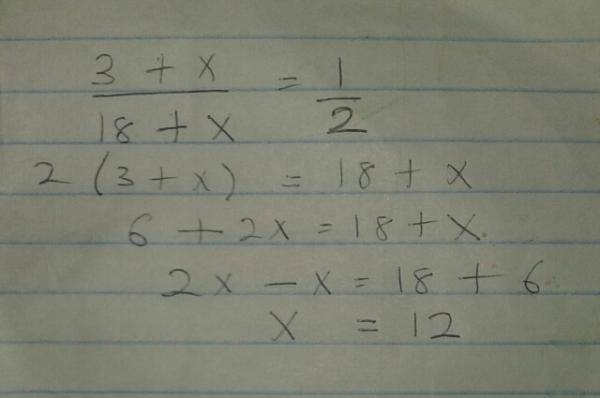 3 + x / 18 + x = 1 / 2
2 (3 + x) = 18 + x
6 + 2x = 18 + x
2x - x = 18 + 6
x = 12